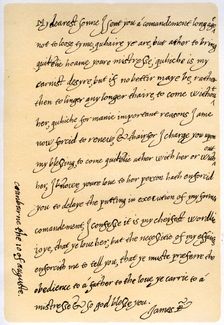 My dearest sonne I sent you a comandement long ago
not to loose tyme, quhaire ye are, but ather to bring
quikelie hoame youre mistresse, quhiche is my
earnist desyre, but if no better maye be, rather
then to linger any longer thaire, to come without
her, quhiche for manie important reasons I ame
now forcid to renew, & thairfor I charge you on
my blessing to come quikelie ather with her or without
her, I knowe youre love to her person hath enforcid
you to delaye the putting in execution of my former
comandement, I confesse it is my cheifest wordlie
joye, that ye love her, but the necessitie of my effaires
enforcith me to tell you, that ye muste præferre the
obedience to a father to the love ye carrie to a
mistresse & so god blesse you.
James R.
the 10 of Auguste